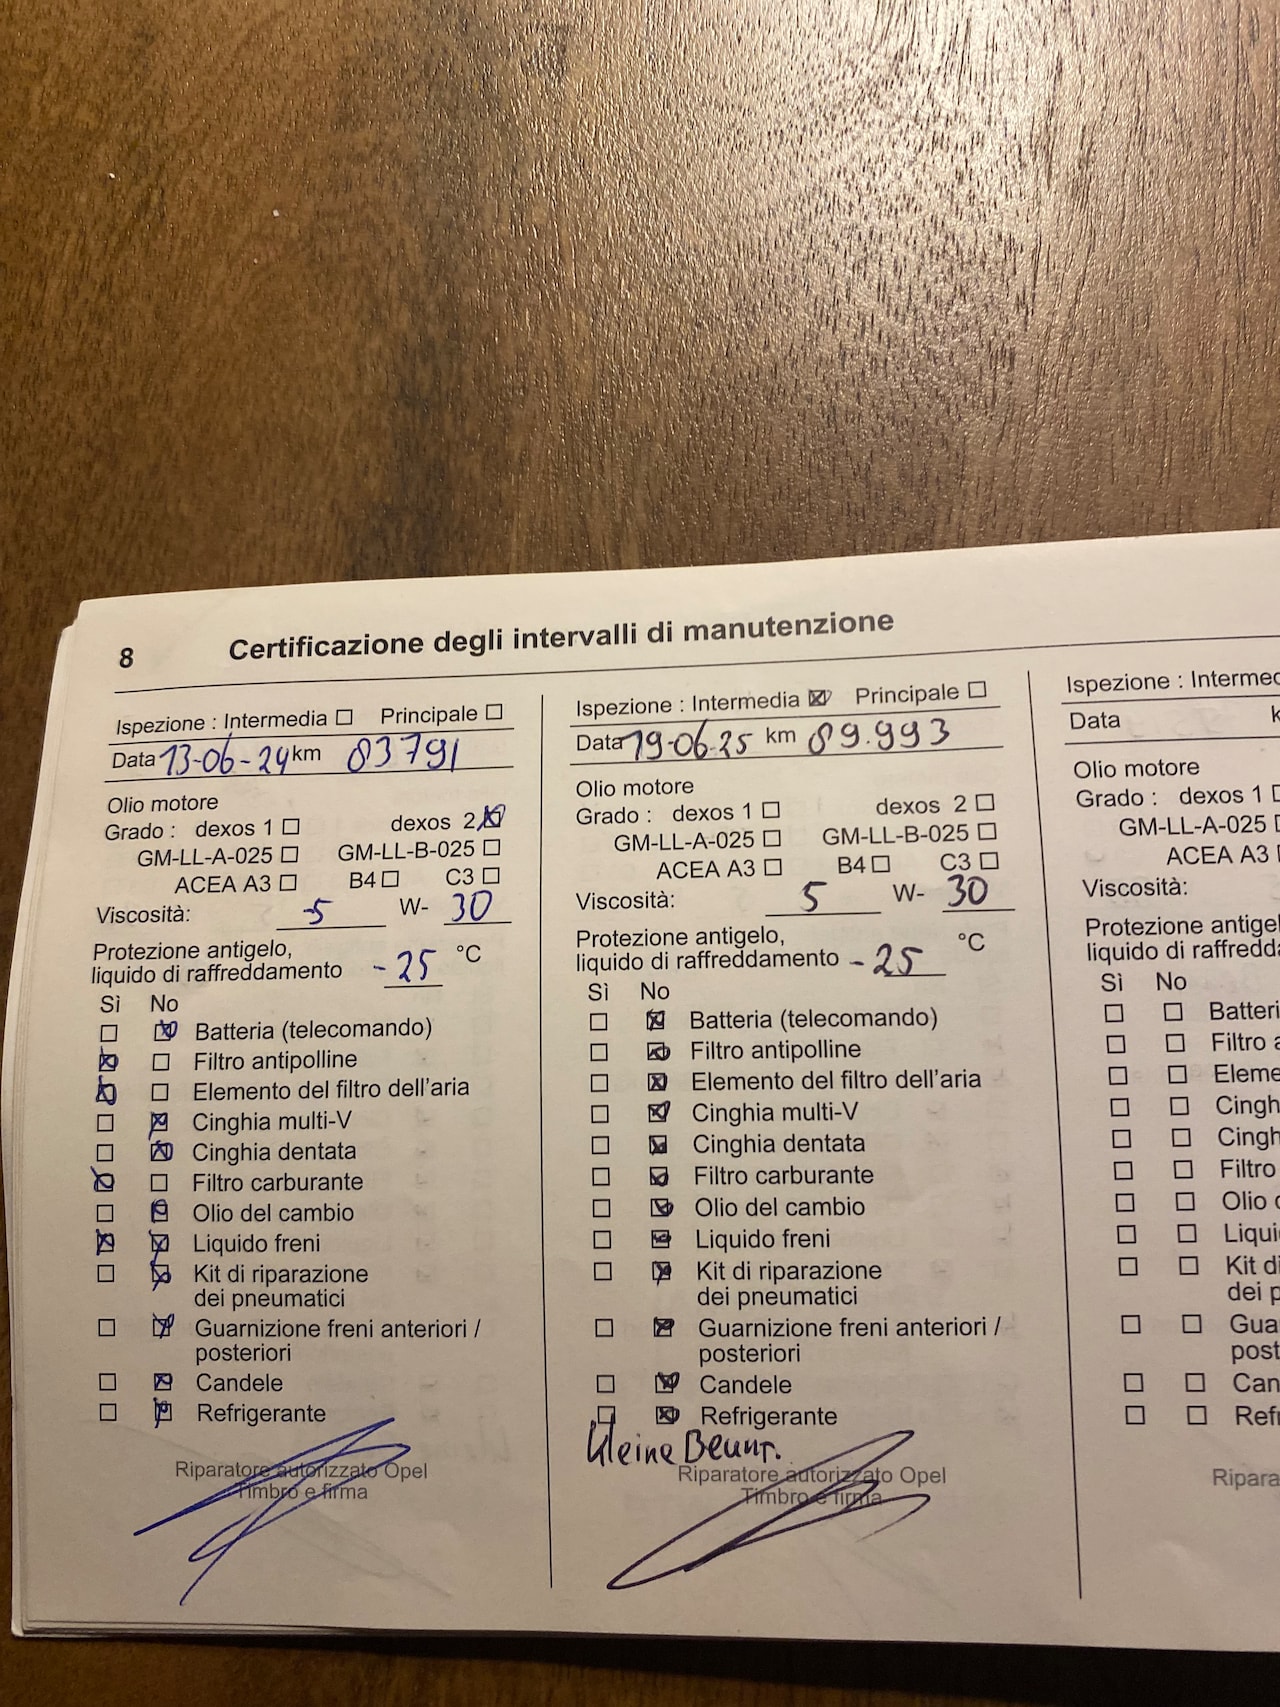 8 Certificazione degli intervalli di manutenzione
Ispezione : Intermedia ☐ Principale ☐
Data 13-06-24 km 83791
Olio motore
Grado : dexos 1 ☐ dexos 2 ☒
GM-LL-A-025 ☐ GM-LL-B-025 ☐
ACEA A3 ☐ B4 ☐ C3 ☐
Viscosità: 5 W- 30
Protezione antigelo,
liquido di raffreddamento -25 °C
Sì No
☐ ☒ Batteria (telecomando)
☒ ☐ Filtro antipolline
☒ ☐ Elemento del filtro dell'aria
☐ ☒ Cinghia multi-V
☐ ☒ Cinghia dentata
☒ ☐ Filtro carburante
☐ ☒ Olio del cambio
☒ ☒ Liquido freni
☐ ☒ Kit di riparazione
dei pneumatici
☐ ☒ Guarnizione freni anteriori /
posteriori
☐ ☒ Candele
☐ ☒ Refrigerante
Riparatore autorizzato Opel
Timbro e firma
Ispezione : Intermedia ☒ Principale ☐
Data 19-06-25 km 89.993
Olio motore
Grado : dexos 1 ☐ dexos 2 ☐
GM-LL-A-025 ☐ GM-LL-B-025 ☐
ACEA A3 ☐ B4 ☐ C3 ☐
Viscosità: 5 W- 30
Protezione antigelo,
liquido di raffreddamento -25 °C
Sì No
☐ ☒ Batteria (telecomando)
☐ ☒ Filtro antipolline
☐ ☒ Elemento del filtro dell'aria
☐ ☒ Cinghia multi-V
☐ ☒ Cinghia dentata
☐ ☒ Filtro carburante
☐ ☒ Olio del cambio
☐ ☒ Liquido freni
☐ ☒ Kit di riparazione
dei pneumatici
☐ ☒ Guarnizione freni anteriori /
posteriori
☐ ☒ Candele
☐ ☒ Refrigerante
Kleine
Riparatore autorizzato Opel
Timbro e firma
Ispezione : Intermed
Data k
Olio motore
Grado : dexos 1 ☐
GM-LL-A-025
ACEA A3
Viscosità:
Protezione antigel
liquido di raffredda
Sì No
☐ ☐ Batteri
☐ ☐ Filtro a
☐ ☐ Eleme
☐ ☐ Cingh
☐ ☐ Cingh
☐ ☐ Filtro
☐ ☐ Olio
☐ ☐ Liqui
☐ ☐ Kit di
dei p
☐ ☐ Gua
post
☐ ☐ Can
☐ ☐ Ref
Ripara